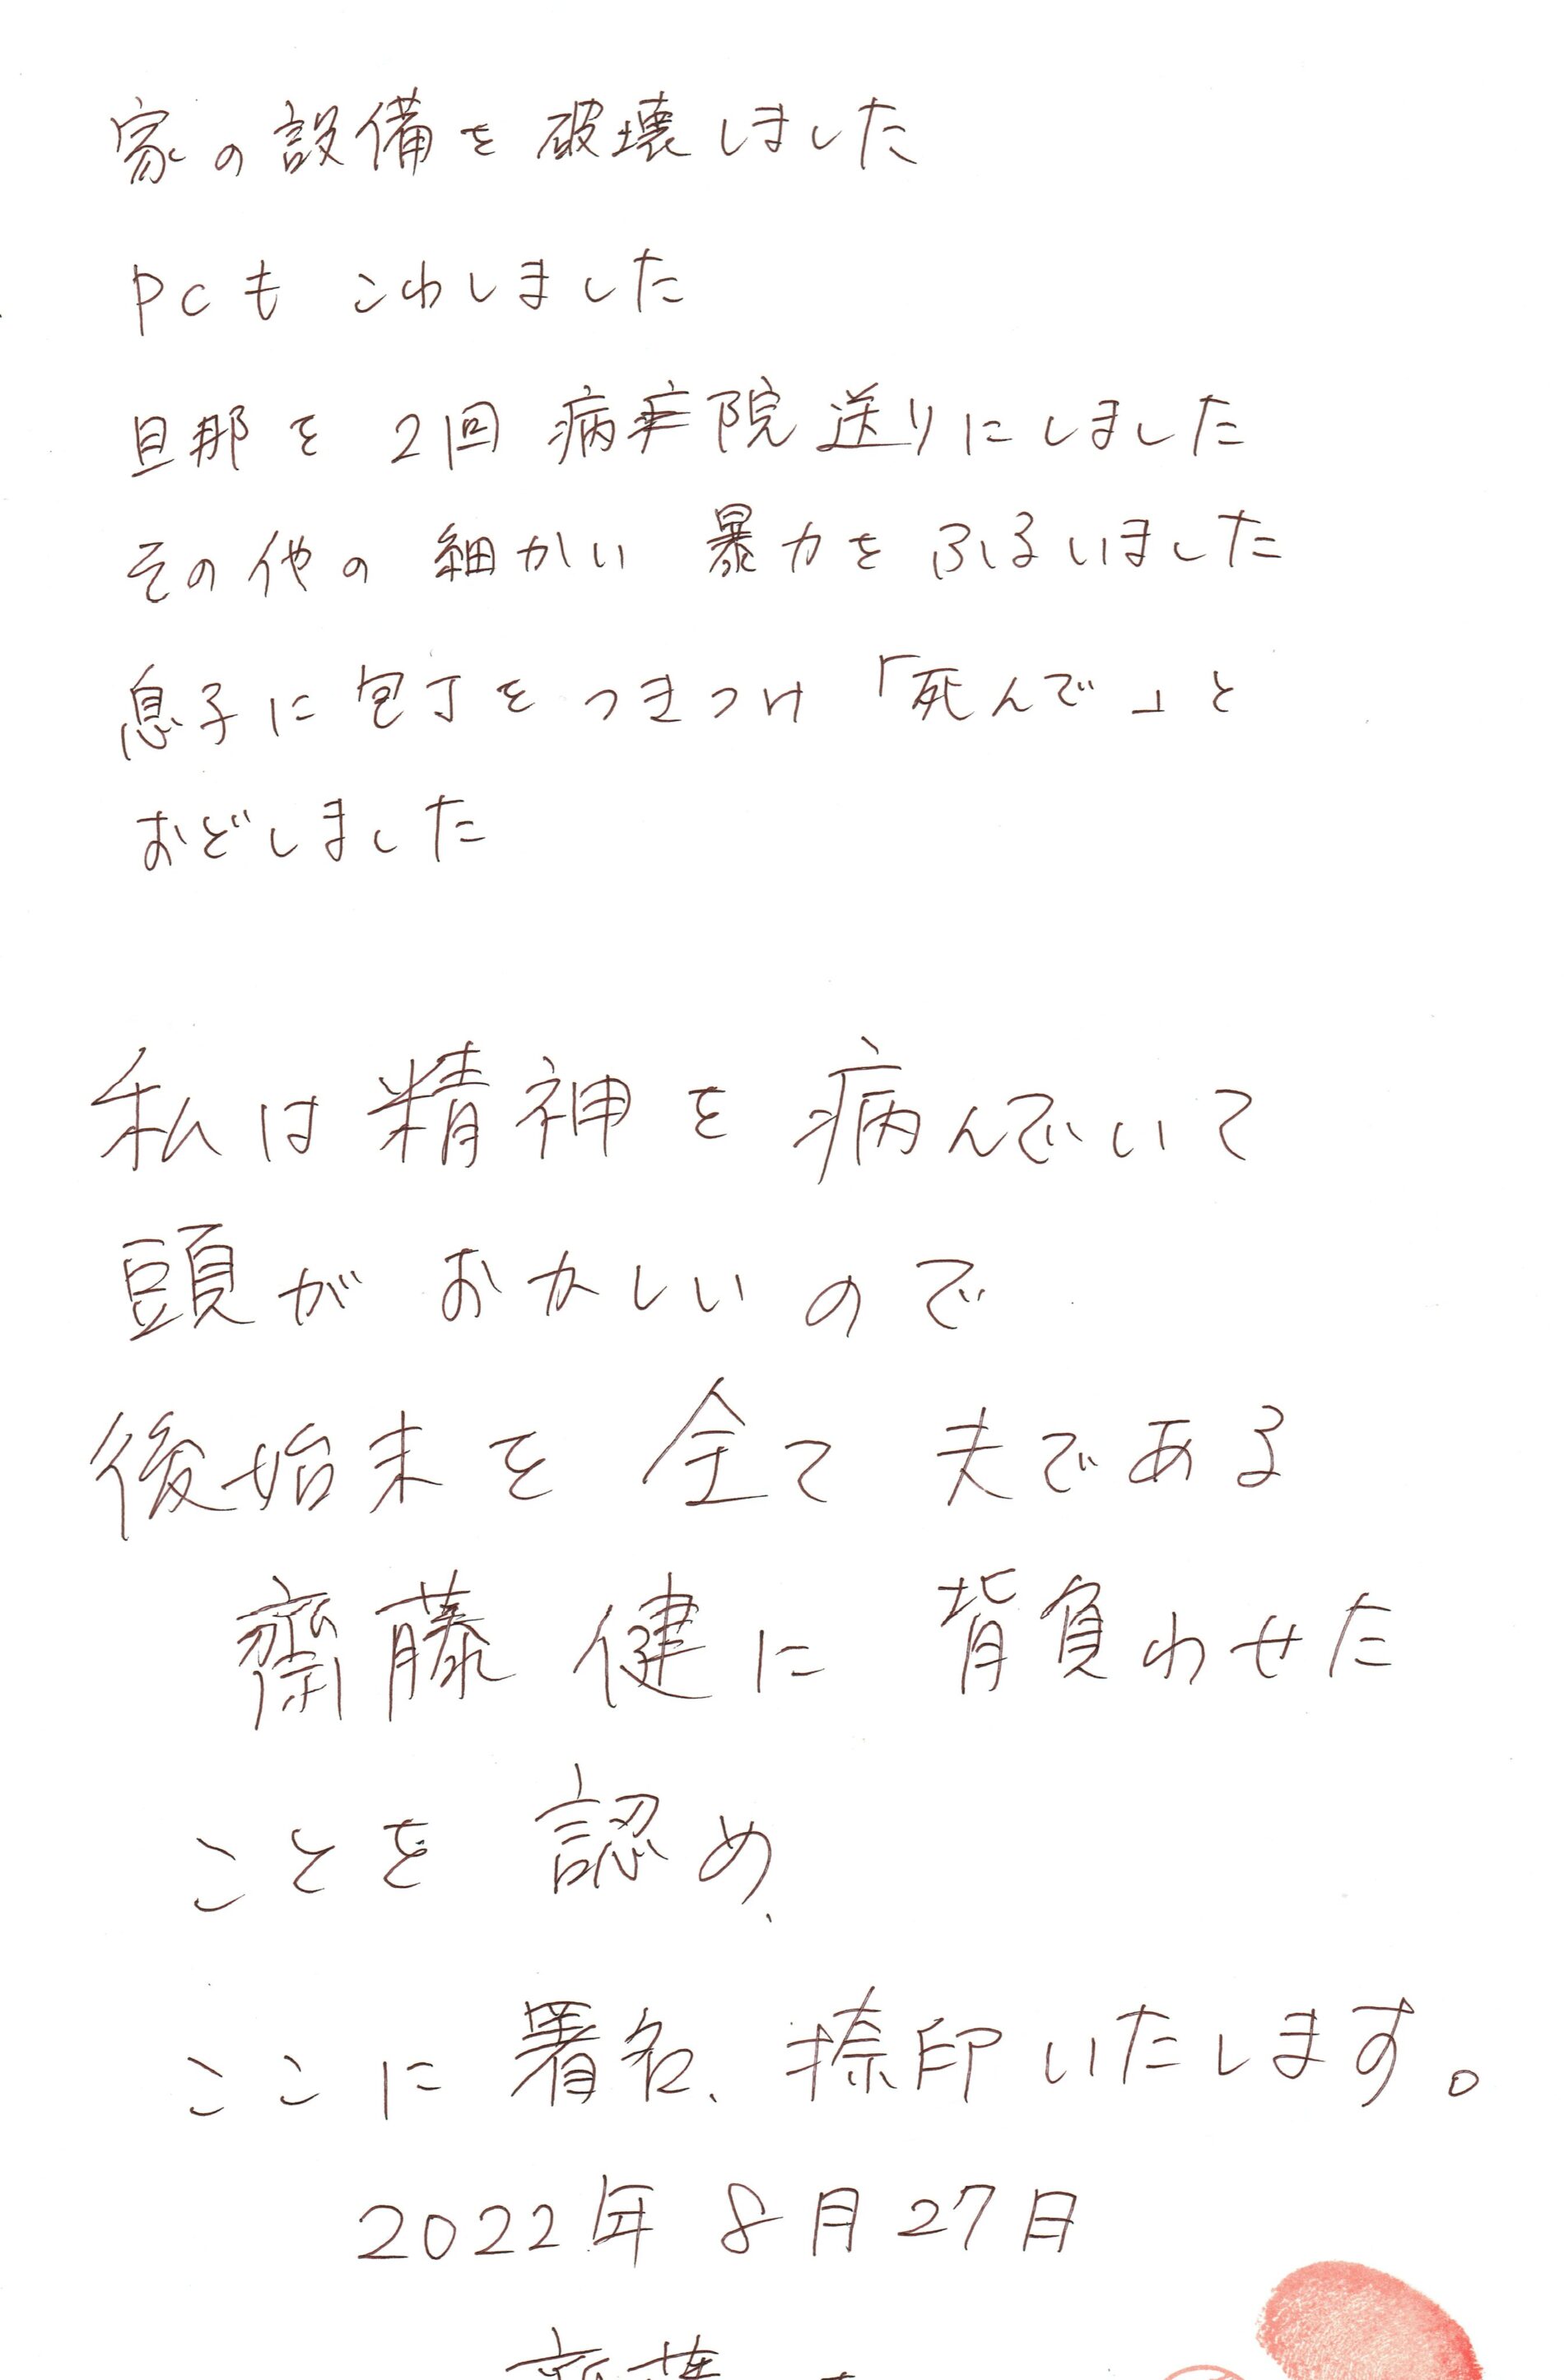 家の設備を破壊しました
PCも こわしました
旦那を 2回 病院送りにしました
その他の 細かい 暴力を ふるいました
息子に 包丁を つきつけ 「死んで」と
おどしました
私は 精神を 病んでいて
頭が おかしいので
後始末を 全て 夫である
齋藤 健に 背負わせた
ことを 認め、
ここに 署名、捺印いたします。
2022年 8月27日